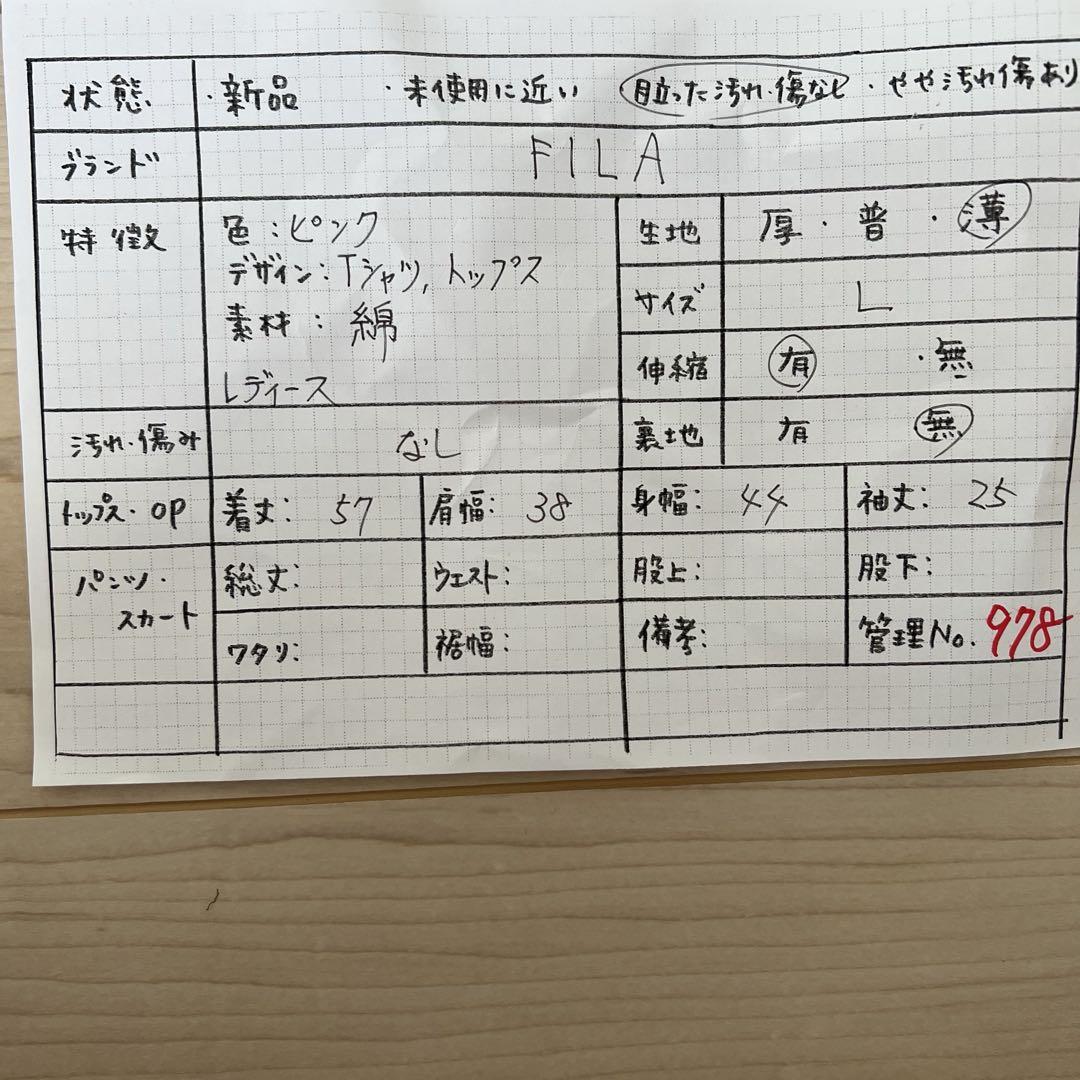 状態 ・新品 ・未使用に近い 目立った汚れ・傷なし ・やや汚れ傷あり
ブランド FILA
特徴 色:ピンク
デザイン:Tシャツ,トップス
素材:綿
レディース
生地 厚・普・薄
サイズ L
伸縮 有・無
裏地 有 無
汚れ・傷み なし
トップス・OP 着丈:57 肩幅:38 身幅:44 袖丈:25
パンツ・
スカート
総丈: ウエスト: 股上: 股下:
ワタリ: 裾幅: 備考: 管理No.978